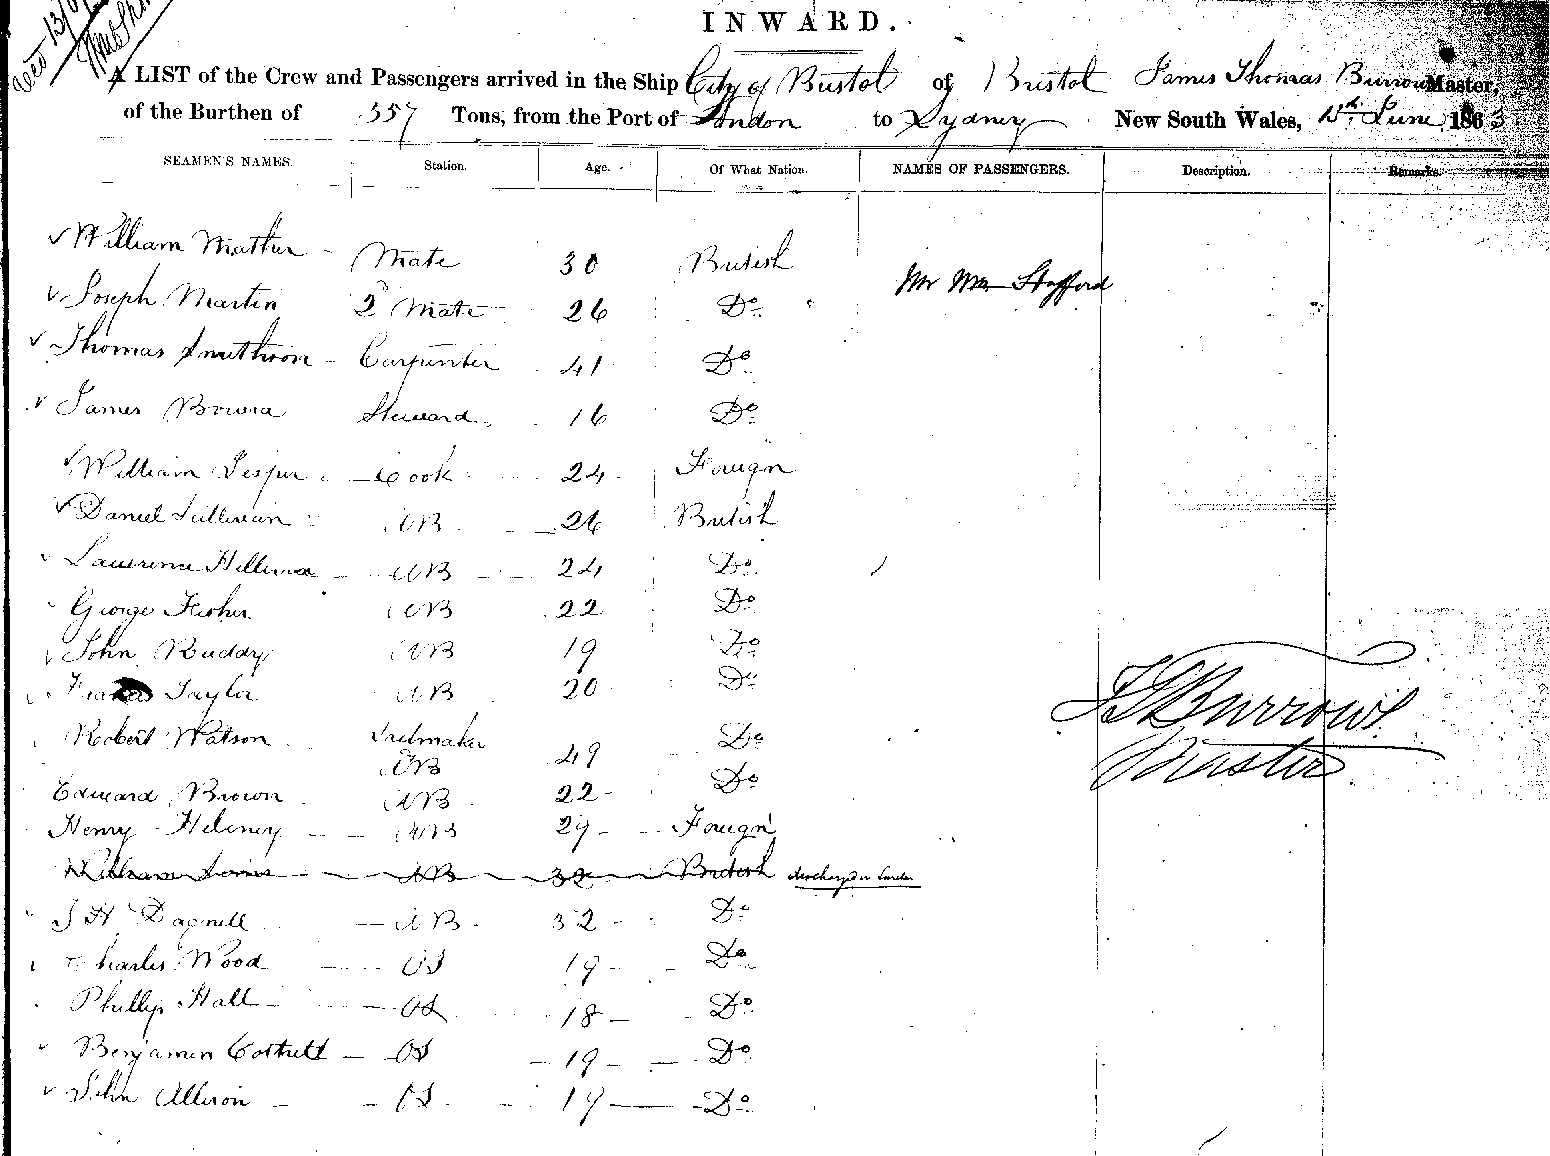 INWARD.
A LIST of the Crew and Passengers arrived in the Ship City of Bristol of Bristol James Thomas Burrows Master,
of the Burthen of 357 Tons, from the Port of London to Sydney New South Wales, 13th June 1863
SEAMEN'S NAMES. Station. Age. Of What Nation. NAMES OF PASSENGERS. Description. Remarks.
William Mather Mate 30 British
Mr Wm Stafford
Joseph Martin 2d Mate 26 Do
Thomas Smithson Carpenter 41 Do
James Brown Steward 16 Do
William Jesper Cook 24 Foreign
Daniel Sullivan AB 26 British
Lawrence AB 24 Do
George Fisher AB 22 Do
John Ruddy AB 19 Do
Taylor AB 20 Do
Robert Watson Sailmaker AB 49 Do
Edward Brown AB 22 Do
Henry AB 29 Foreign
William AB 32 British discharged in London
J H Dagnell AB 32 Do
Charles Wood OS 19 Do
Phillip Hall OS 18 Do
Benjamin Cottrell OS 19 Do
John Allison OS 19 Do
J T Burrows
Master